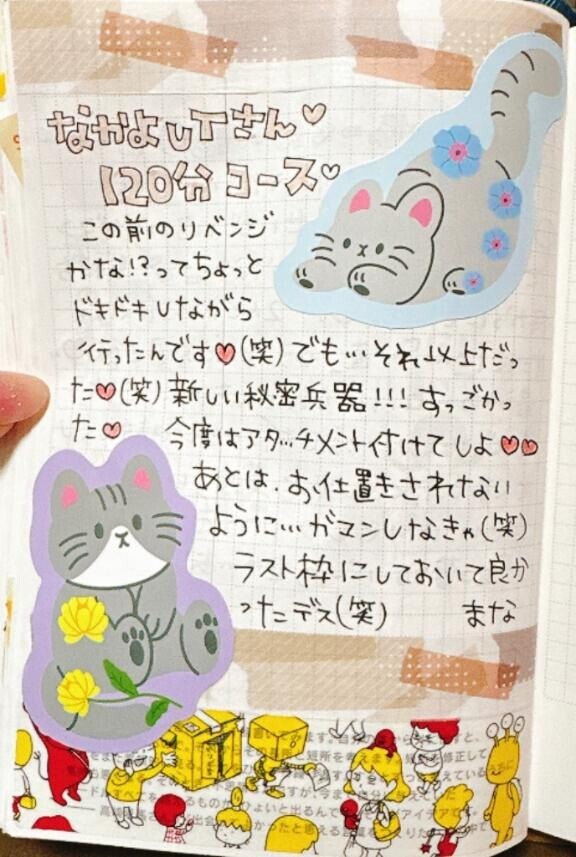 なかよしTさん♡
120分コース♡
この前のリベンジ
かな!?ってちょっと
ドキドキしながら
行ったんです♥(笑)でも…それ以上だっ
た♥(笑)新しい秘密兵器!!!すっごかっ
た♥ 今度はアタッチメント付けてしよ♥♥
あとは、お仕置きされない
ように…ガマンしなきゃ(笑)
ラスト枠にしておいて良か
ったデス(笑) まな